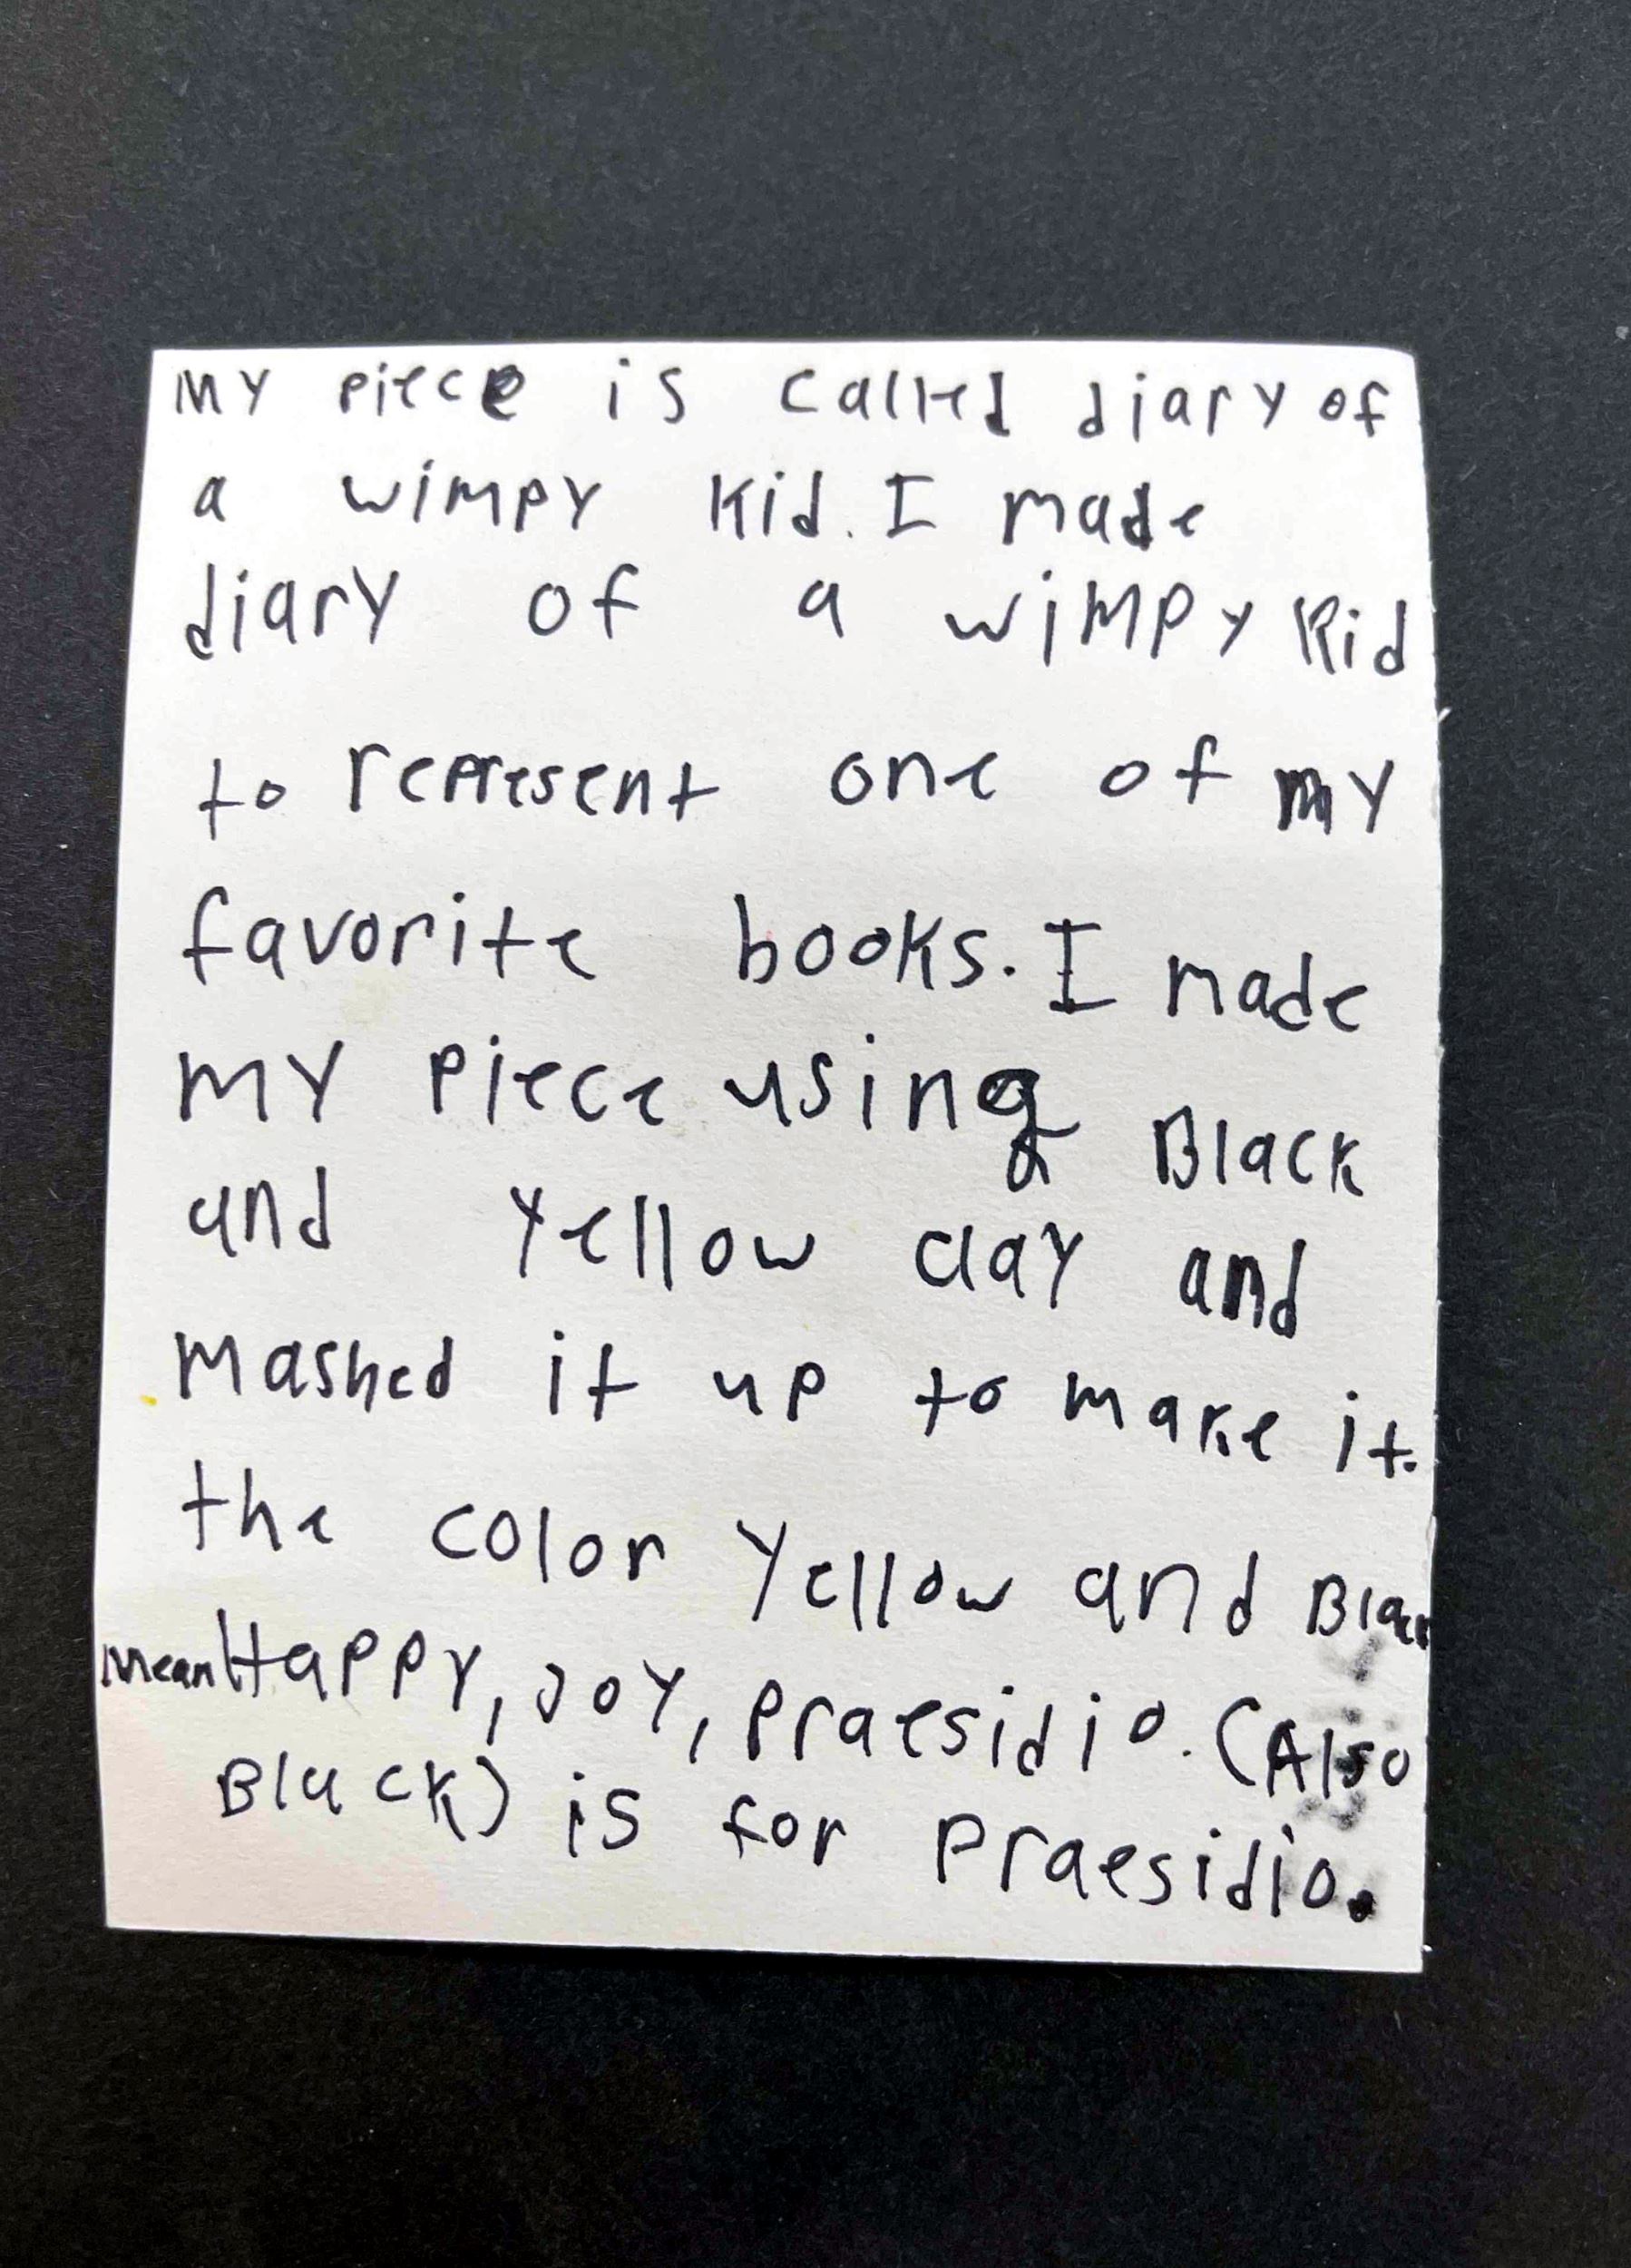 my piece is called diary of
a wimpy kid. I made
diary of a wimpy kid
to represent one of my
favorite books. I made
my piece using Black
and yellow clay and
mashed it up to make it.
the color yellow and Black
mean Happy, Joy, Praesidio. (Also
Black) is for Praesidio.